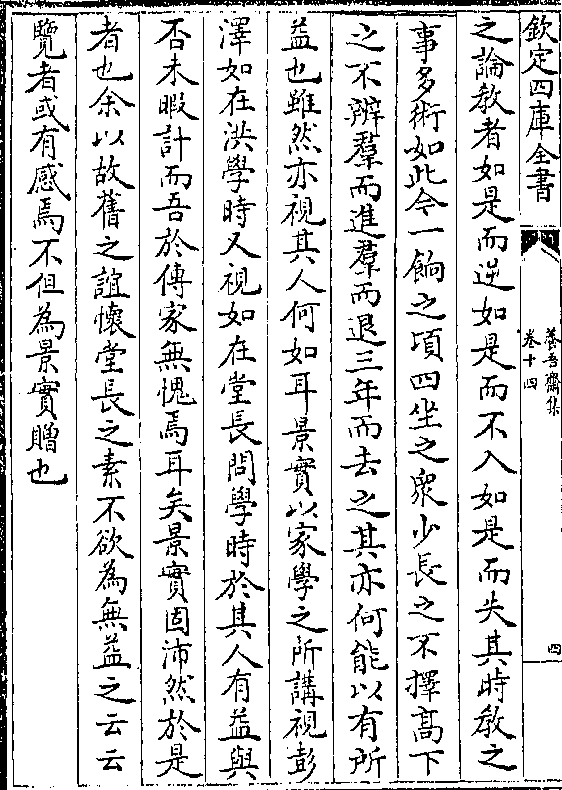 欽定四庫全書
養吾齋集
卷十四
四
之論教者如是而逆如是而不入如是而失其時教之
事多術如此今一餉之頃四坐之衆少長之不擇高下
之不辨羣而進羣而退三年而去之其亦何能以有所
益也雖然亦視其人何如耳景實以家學之所講視彭
澤如在洪學時又視如在堂長問學時於其人有益與
否未暇計而吾於傳家無愧焉耳矣景實固沛然於是
者也余以故舊之誼懷堂長之素不欲為無益之云云
覽者或有感焉不但為景實贈也